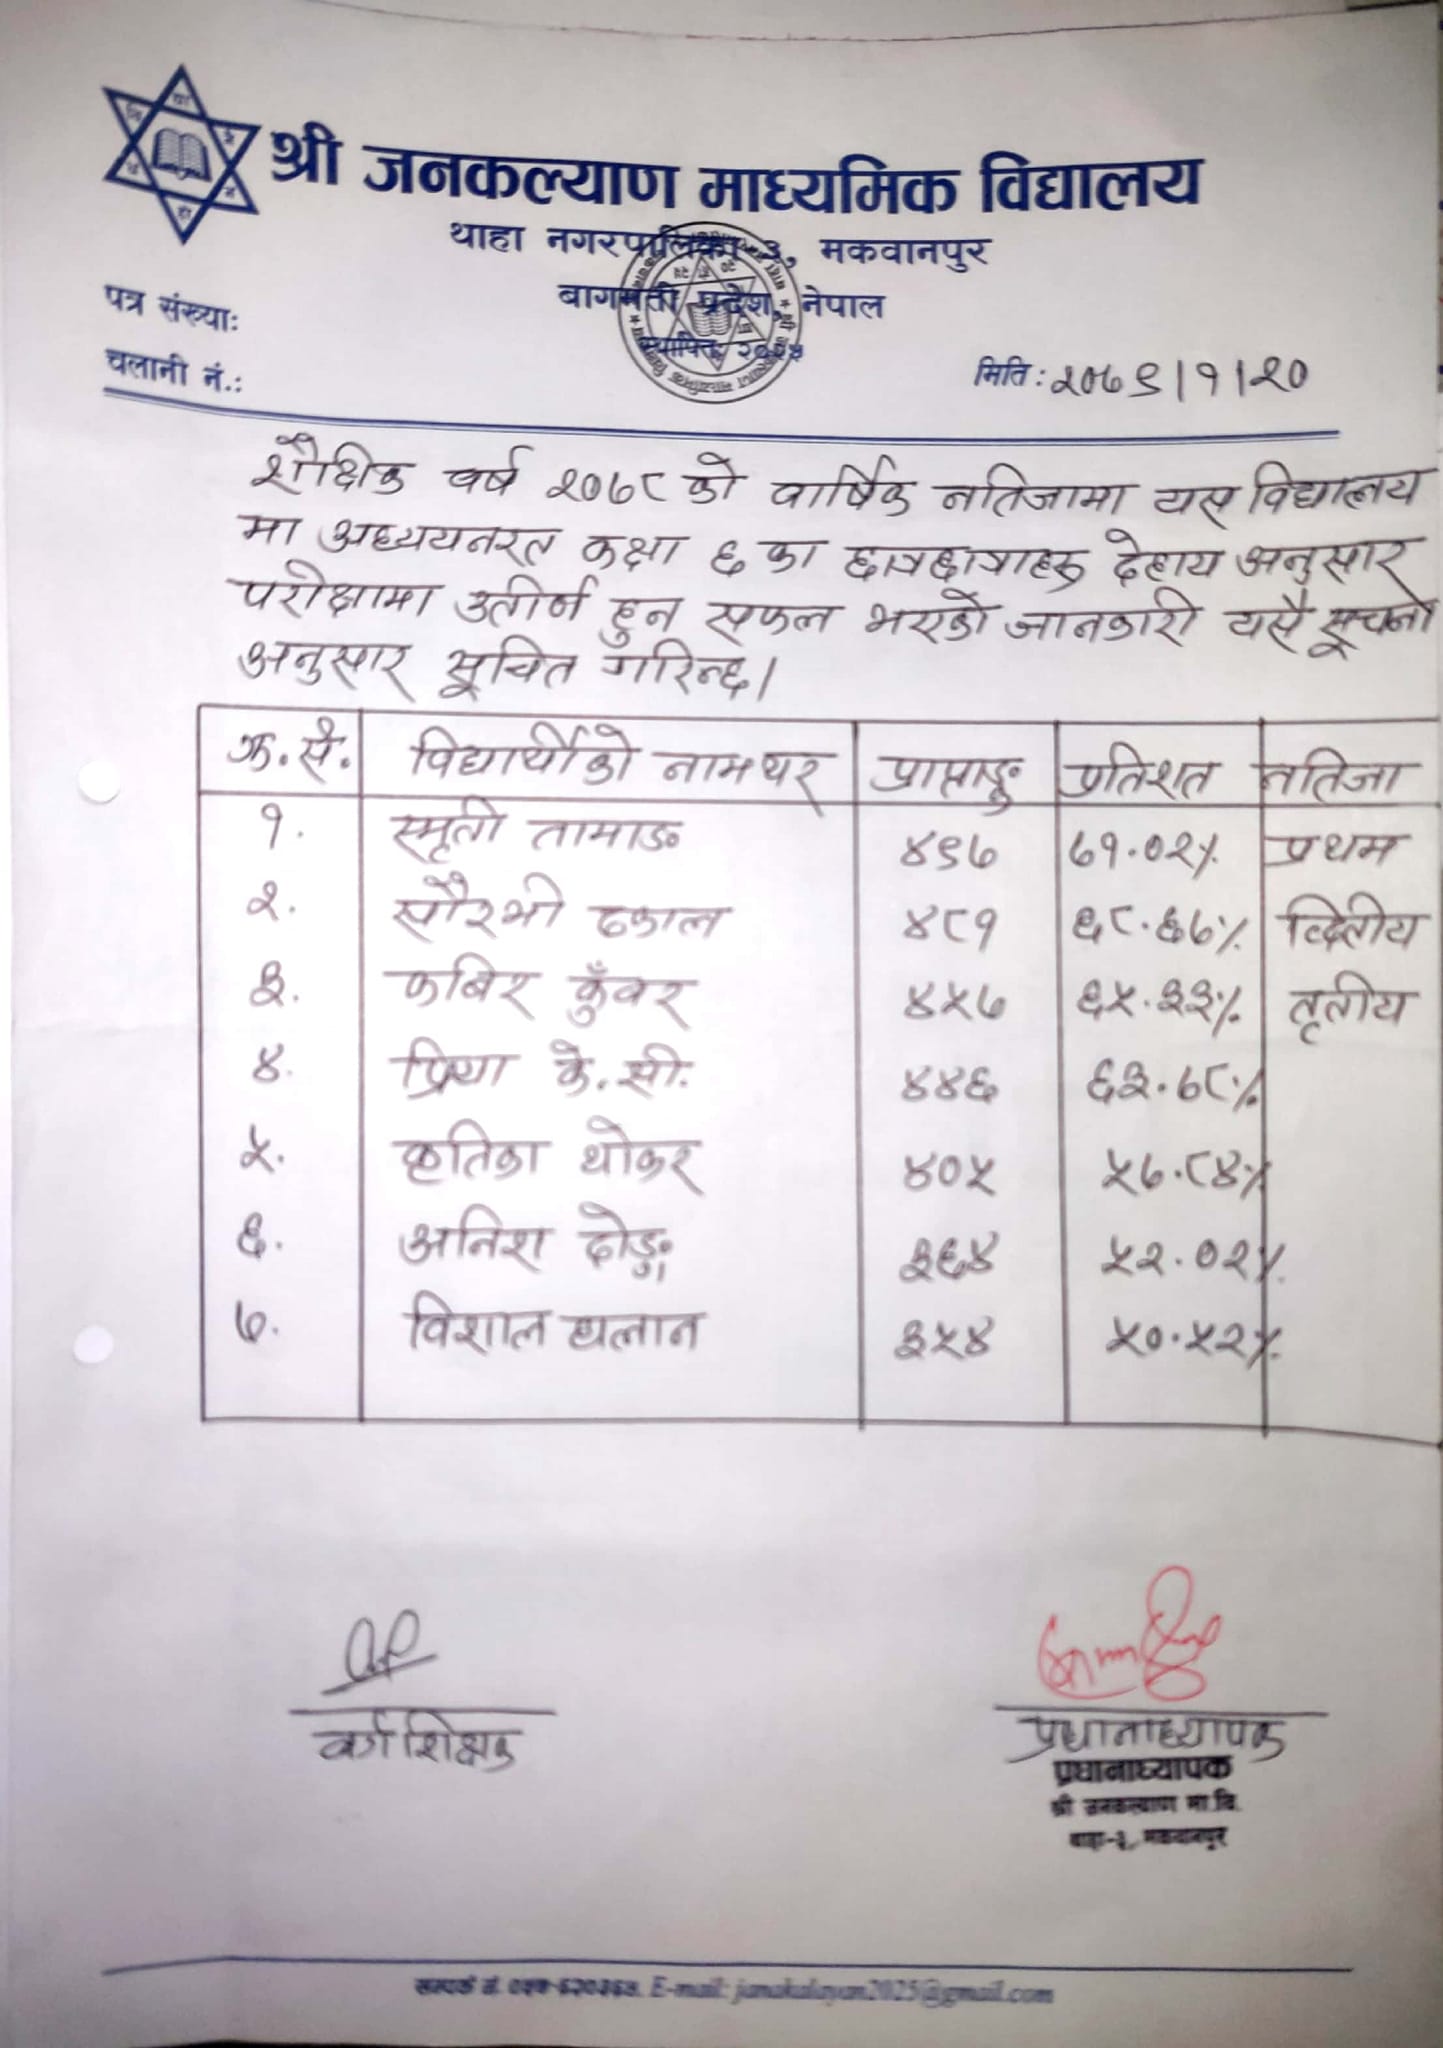 श्री जनकल्याण माध्यमिक विद्यालय
थाहा नगरपालिका-३, मकवानपुर
बागमती प्रदेश, नेपाल
पत्र संख्या:
चलानी नं.:
मिति: २०७९।१।२०
शैक्षिक वर्ष २०७८ को वार्षिक नतिजामा यस विद्यालय
मा अध्ययनरत कक्षा ६ का छात्रछात्राहरु देहाय अनुसार
परीक्षामा उतीर्ण हुन सफल भएको जानकारी यसै सूचना
अनुसार सूचित गरिन्छ।
क्र.सं. विद्यार्थीको नामथर प्राप्ताङ्क प्रतिशत नतिजा
१. स्मृती तामाङ ४९७ ७१.०२% प्रथम
२. सौरभी ढकाल ४८१ ६८.६७% द्वितीय
३. कबिर कुँवर ४५७ ६५.३३% तृतीय
४. प्रिया के.सी. ४४६ ६३.७८%
५. कृतिका थोकर ४०५ ५७.८४%
६. अनिश दोङ्ग ३६४ ५२.०२%
७. विशाल घलान ३५४ ५०.५२%
वर्ग शिक्षक
प्रधानाध्यापक
प्रधानाध्यापक
श्री जनकल्याण मा.वि.
थाहा-३, मकवानपुर
सम्पर्क नं. E-mail: janakalayan2025@gmail.com